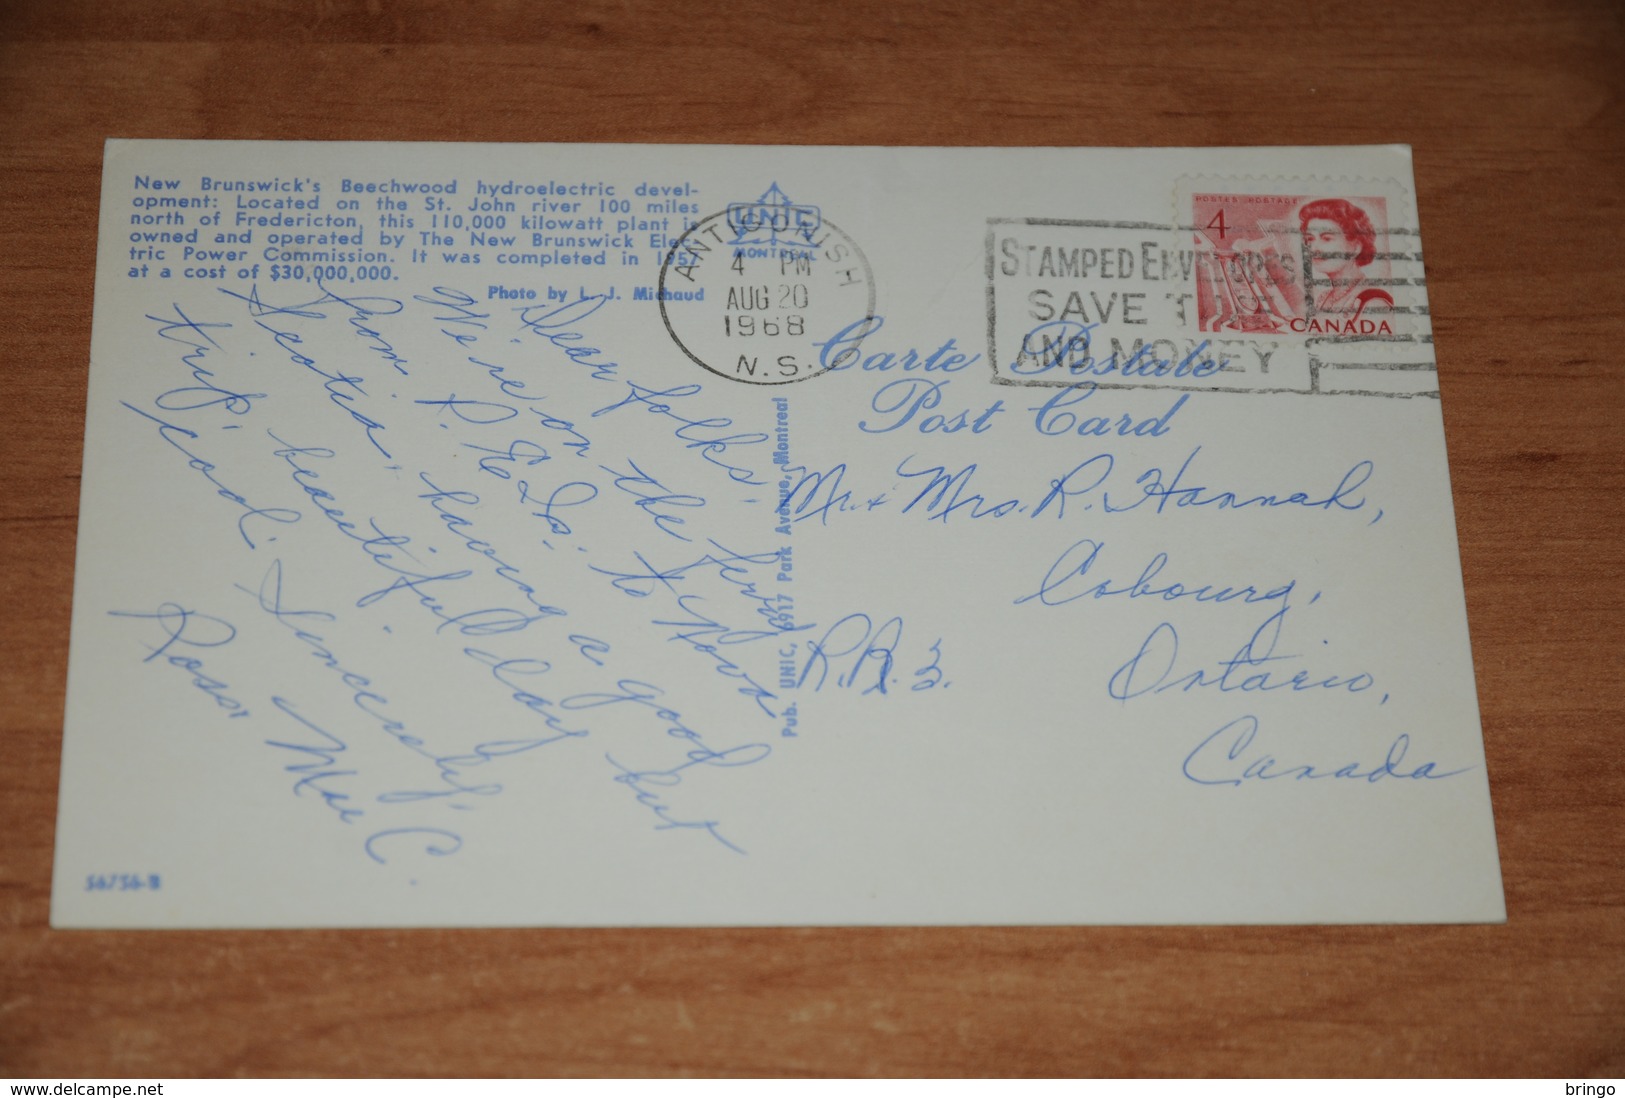 New Brunswick's Beechwood hydroelectric devel-
opment: Located on the St. John river 100 miles
north of Fredericton, this 110,000 kilowatt plant is
owned and operated by The New Brunswick Elec-
tric Power Commission. It was completed in 1957
at a cost of $30,000,000.
Photo by L. J. Michaud
UNIC
MONTREAL
ANTIGONISH
4 PM
AUG 20
1968
N.S.
STAMPED ENVELOPES
SAVE TIME
AND MONEY
POSTES POSTAGE
4
CANADA
Carte Postale
Post Card
Pub. UNIC, 6917 Park Avenue, Montreal
Dear folks:
We're on the ferry
from P.E.Is. to Nova
Scotia, having a good
trip, beautiful day but
cool. Sincerely,
Ross & Mae C.
Mr. & Mrs. R. Hannah,
Cobourg,
R.R. 3. Ontario,
Canada
S6756-B
delcampe.net
bringo